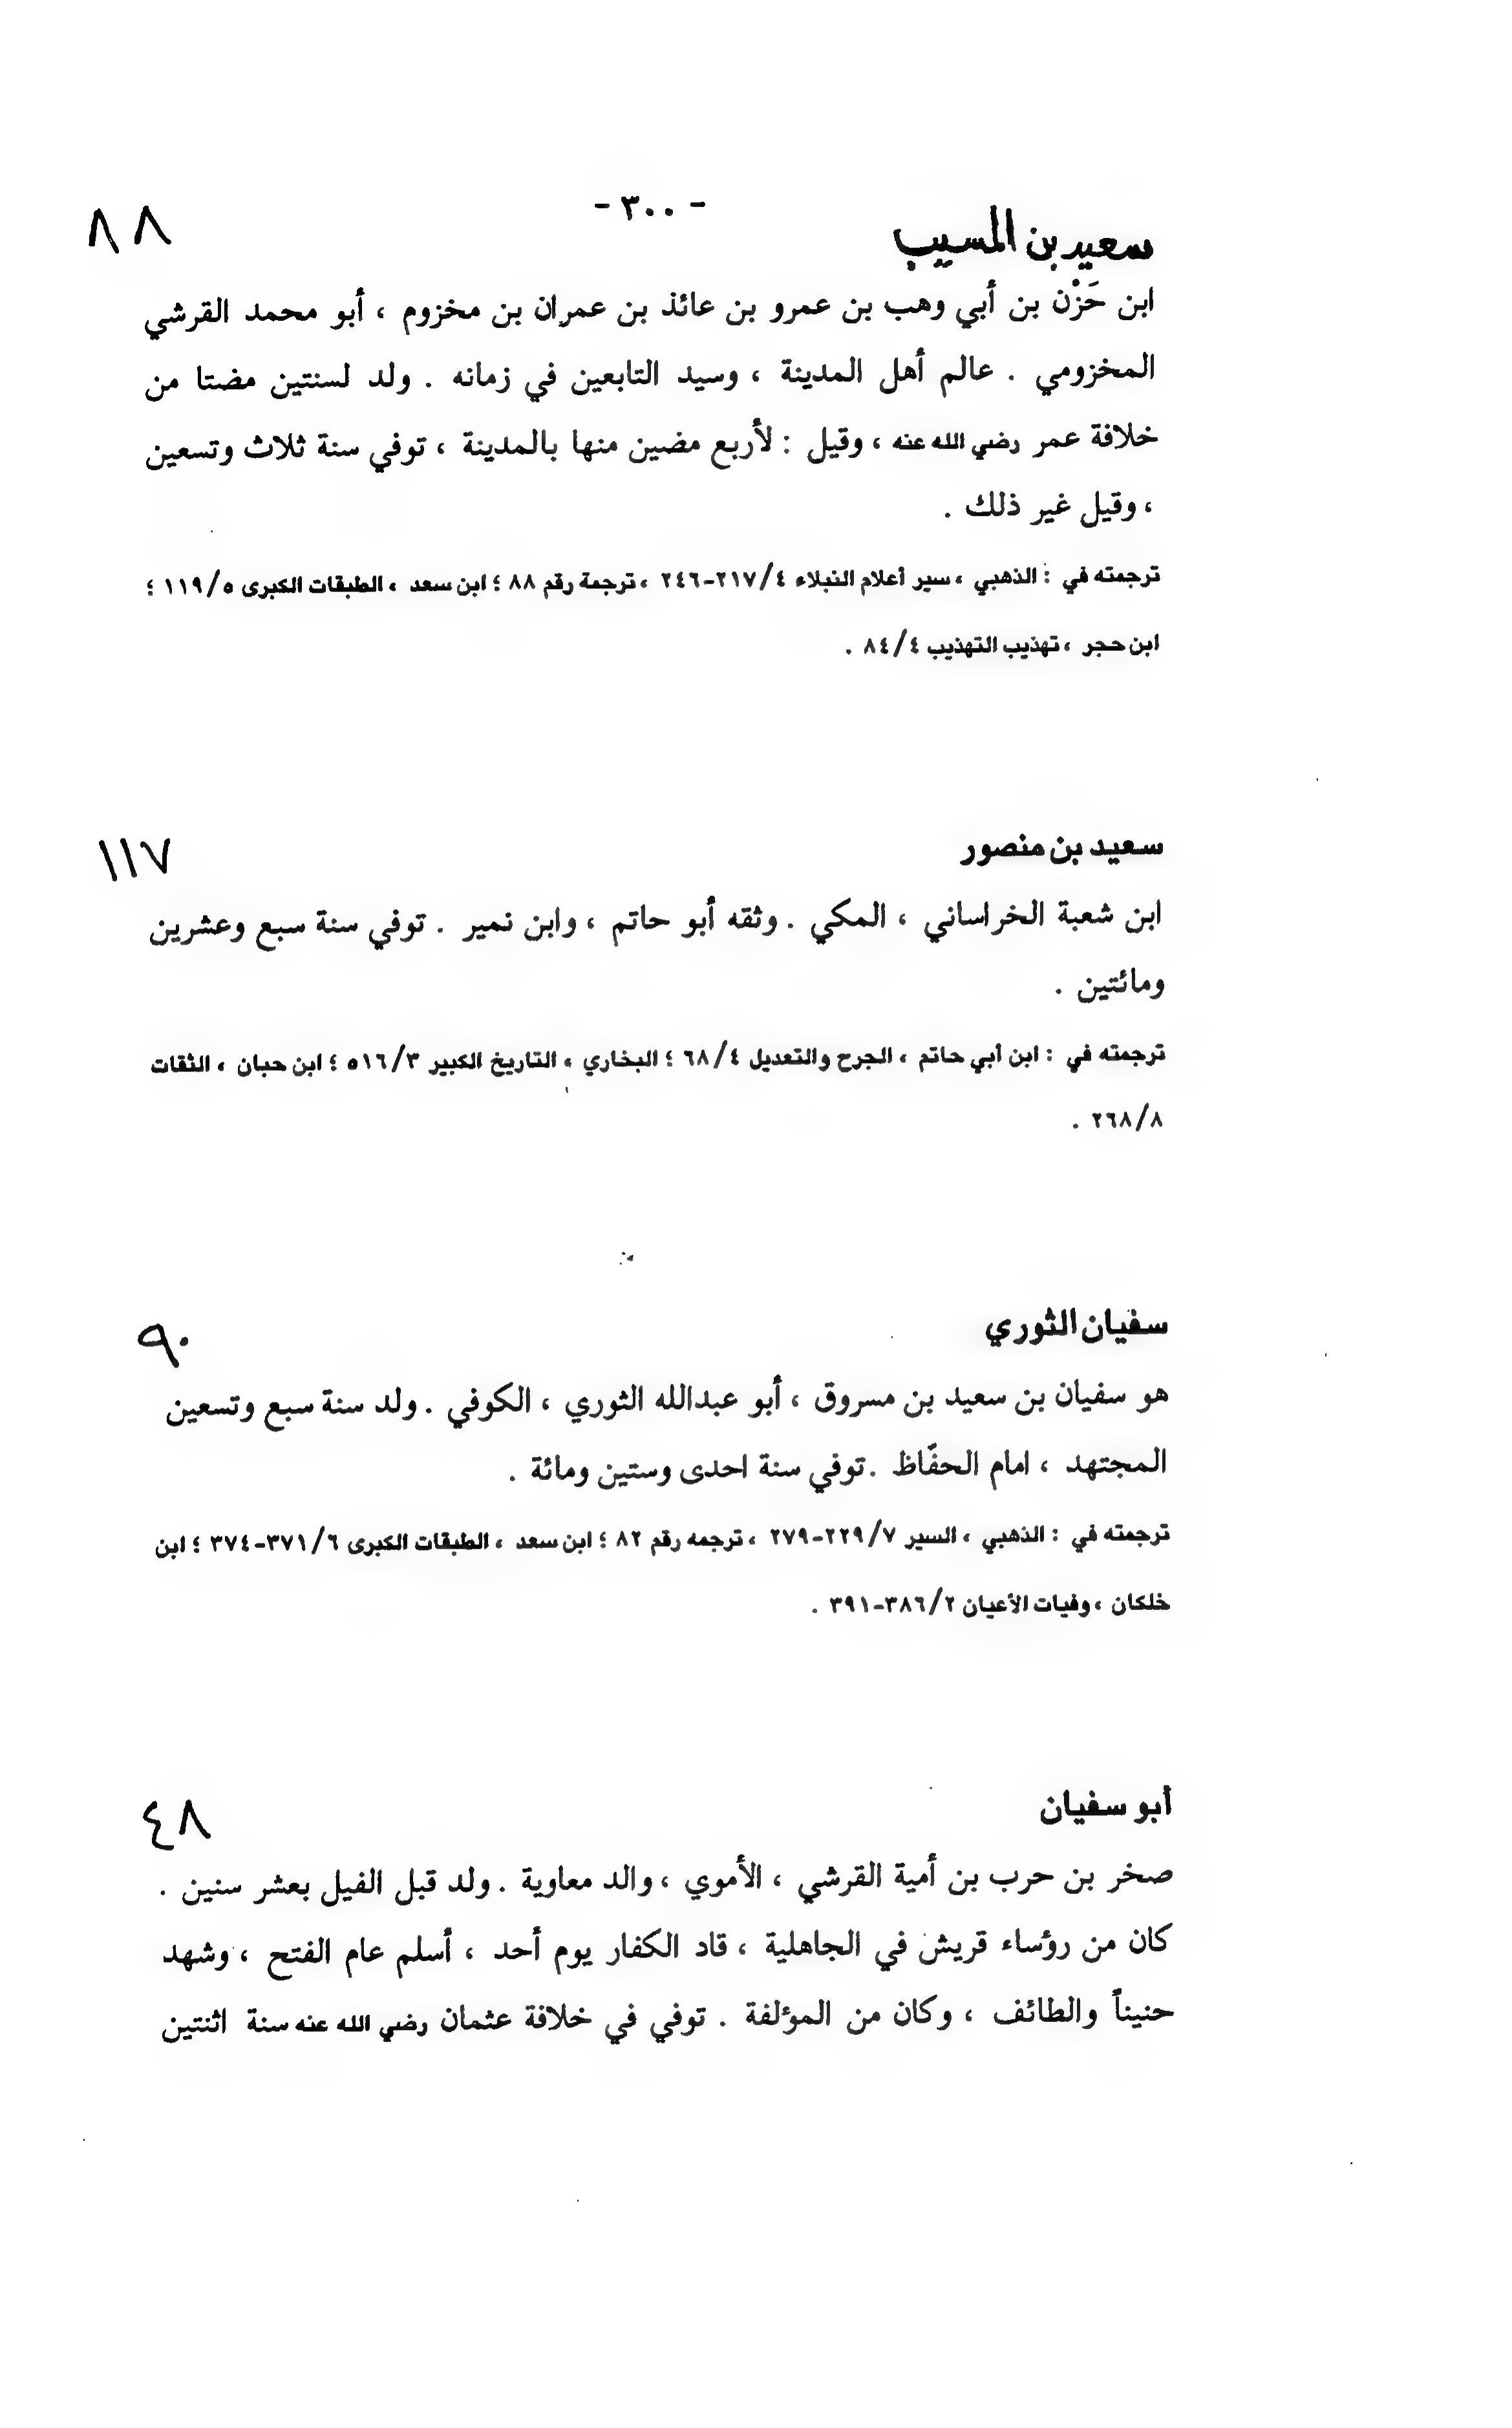 - ٣٠٠ -
سعيد بن المسيب ٨٨
ابن حَزْن بن أبي وهب بن عمرو بن عائذ بن عمران بن مخزوم ، أبو محمد القرشي
المخزومي . عالم أهل المدينة ، وسيد التابعين في زمانه . ولد لسنتين مضتا من
خلافة عمر رضي الله عنه ، وقيل : لأربع مضين منها بالمدينة ، توفي سنة ثلاث وتسعين
، وقيل غير ذلك .
ترجمته في : الذهبي ، سير أعلام النبلاء ٤/٢١٧-٢٤٦ ، ترجمة رقم ٨٨ ؛ ابن سعد ، الطبقات الكبرى ٥/١١٩ ؛
ابن حجر ، تهذيب التهذيب ٤/٨٤ .
سعيد بن منصور ١١٧
ابن شعبة الخراساني ، المكي . وثقه أبو حاتم ، وابن نمير . توفي سنة سبع وعشرين
ومائتين .
ترجمته في : ابن أبي حاتم ، الجرح والتعديل ٤/٦٨ ؛ البخاري ، التاريخ الكبير ٣/٥١٦ ؛ ابن حبان ، الثقات
٨/٢٦٨ .
سفيان الثوري ٩٠
هو سفيان بن سعيد بن مسروق ، أبو عبدالله الثوري ، الكوفي . ولد سنة سبع وتسعين
المجتهد ، امام الحفّاظ .توفي سنة احدى وستين ومائة .
ترجمته في : الذهبي ، السير ٧/٢٢٩-٢٧٩ ، ترجمه رقم ٨٢ ؛ ابن سعد ، الطبقات الكبرى ٦/٣٧١-٣٧٤ ؛ ابن
خلكان ، وفيات الأعيان ٢/٣٨٦-٣٩١ .
أبو سفيان ٤٨
صخر بن حرب بن أمية القرشي ، الأموي ، والد معاوية . ولد قبل الفيل بعشر سنين .
كان من رؤساء قريش في الجاهلية ، قاد الكفار يوم أحد ، أسلم عام الفتح ، وشهد
حنيناً والطائف ، وكان من المؤلفة . توفي في خلافة عثمان رضي الله عنه سنة اثنتين